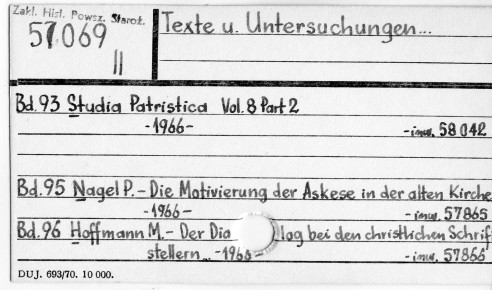 Zakl. Hist. Powsz. Staroż.
57069
II
Texte u. Untersuchungen...
Bd.93 Studia Patristica Vol.8 Part 2
-1966- -inw. 58042
Bd.95 Nagel P.- Die Motivierung der Askese in der alten Kirche
-1966- -inw. 57865
Bd.96 Hoffmann M.- Der Dialog bei den christlichen Schrift
stellern... -1966- -inw. 57866
DUJ. 693/70. 10 000.